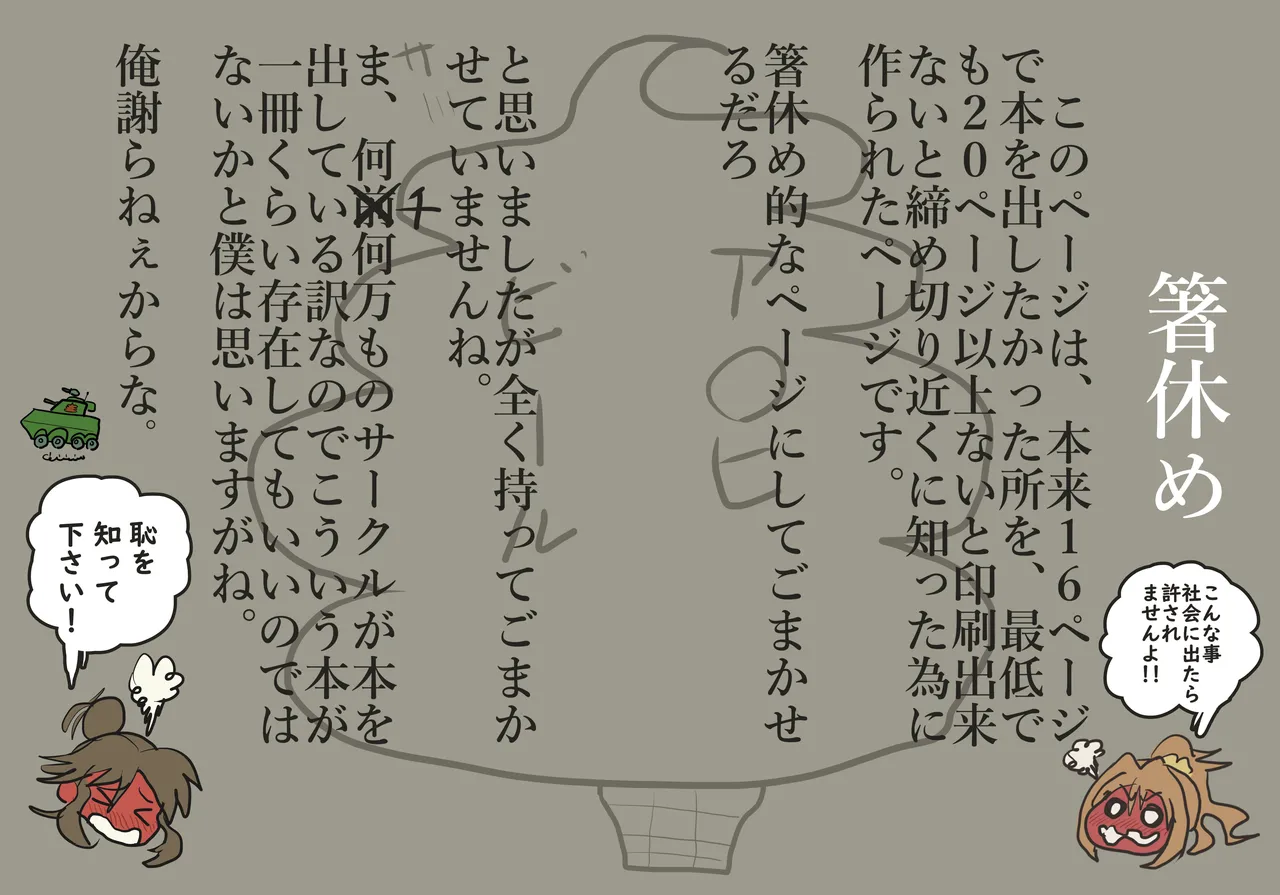 箸休め
このページは、本来16ページ
で本を出したかった所を、最低で
も20ページ以上ないと印刷出来
ないと締め切り近くに知った為に
作られたページです。
箸休め的なページにしてごまかせ
るだろ
と思いましたが全く持ってごまか
せていませんね。
ま、何前何万ものサークルが本を
出している訳なのでこういう本が
一冊くらい存在してもいいのでは
ないかと僕は思いますがね。
俺謝らねぇからな。
こんな事
社会に出たら
許され
ませんよ!!
恥を
知って
下さい!